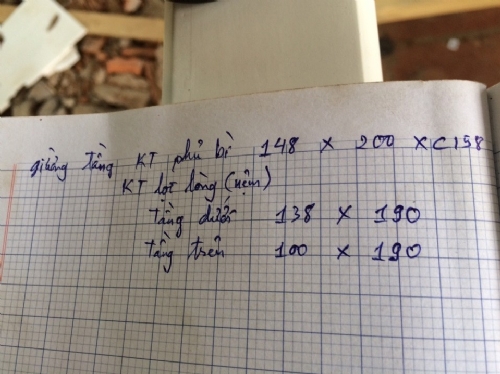 giường tầng KT phủ bì 148 x 200 x C158
KT lọt lòng (nệm)
tầng dưới 138 x 190
tầng trên 100 x 190